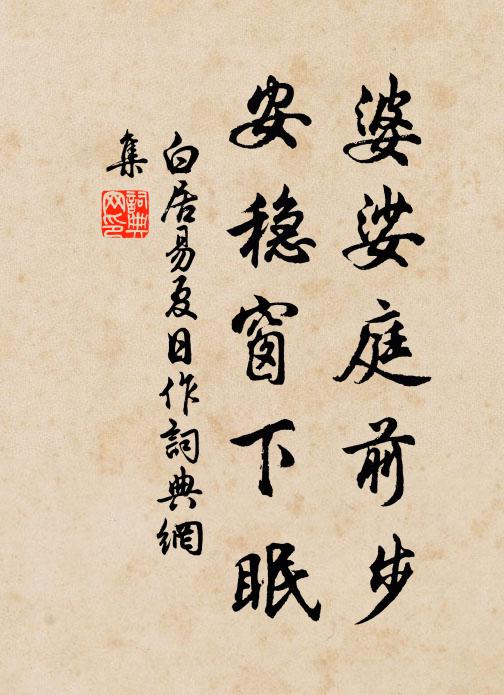 婆娑庭前步
安稳窗下眠
白居易夏日作詞典網
集
詞典
网印